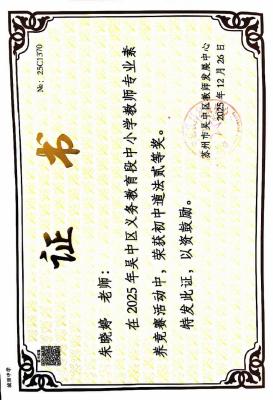 №：25C1370
证书
朱晓婷 老师：
在2025年吴中区义务教育段中小学教师专业素
养竞赛活动中，荣获初中道法贰等奖。
特发此证，以资鼓励。
苏州市吴中区教师发展中心
2025年12月26日